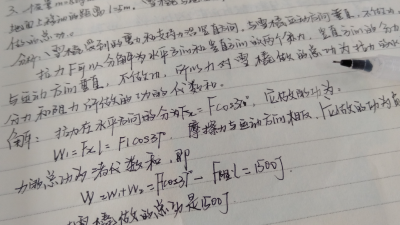 3.
地面上移动的距离 l=5m.
的总功.
分析: 雪橇受到的重力和支持力沿竖直方向, 与雪橇运动方向垂直, 不做功.
拉力F可以分解为水平方向和竖直方向的两个分力, 竖直方向的分力
与运动方向垂直, 不做功, 所以力对雪橇做的总功为拉力的水平
分力和阻力所做的功的代数和.
解: 拉力在水平方向的分力为Fx = Fcos37°, 它做的功为:
W₁ = Fx l = Fl cos37°. 摩擦力与运动方向相反, 它做的功为负
力的总功为二者代数和, 即
W = W₁ + W₂ = Flcos37° - F阻 l = 1500J.
雪橇做的总功是1500J